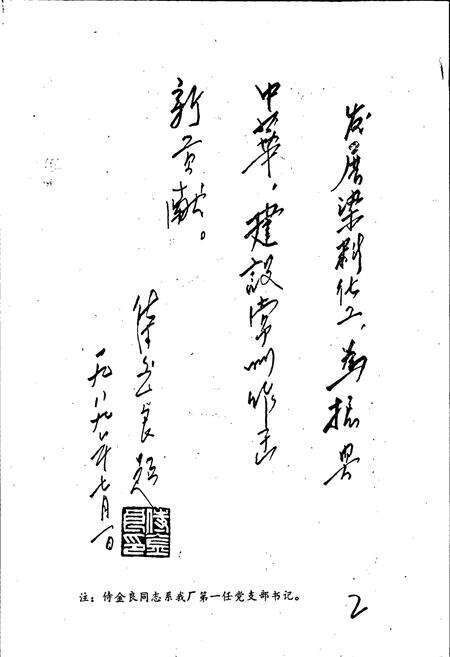 发展染料化工，为振兴
中华，建设常州作出
新贡献。
侍金良题
一九八九年七月一日
侍金良印
注：侍金良同志系我厂第一任党支部书记。
2